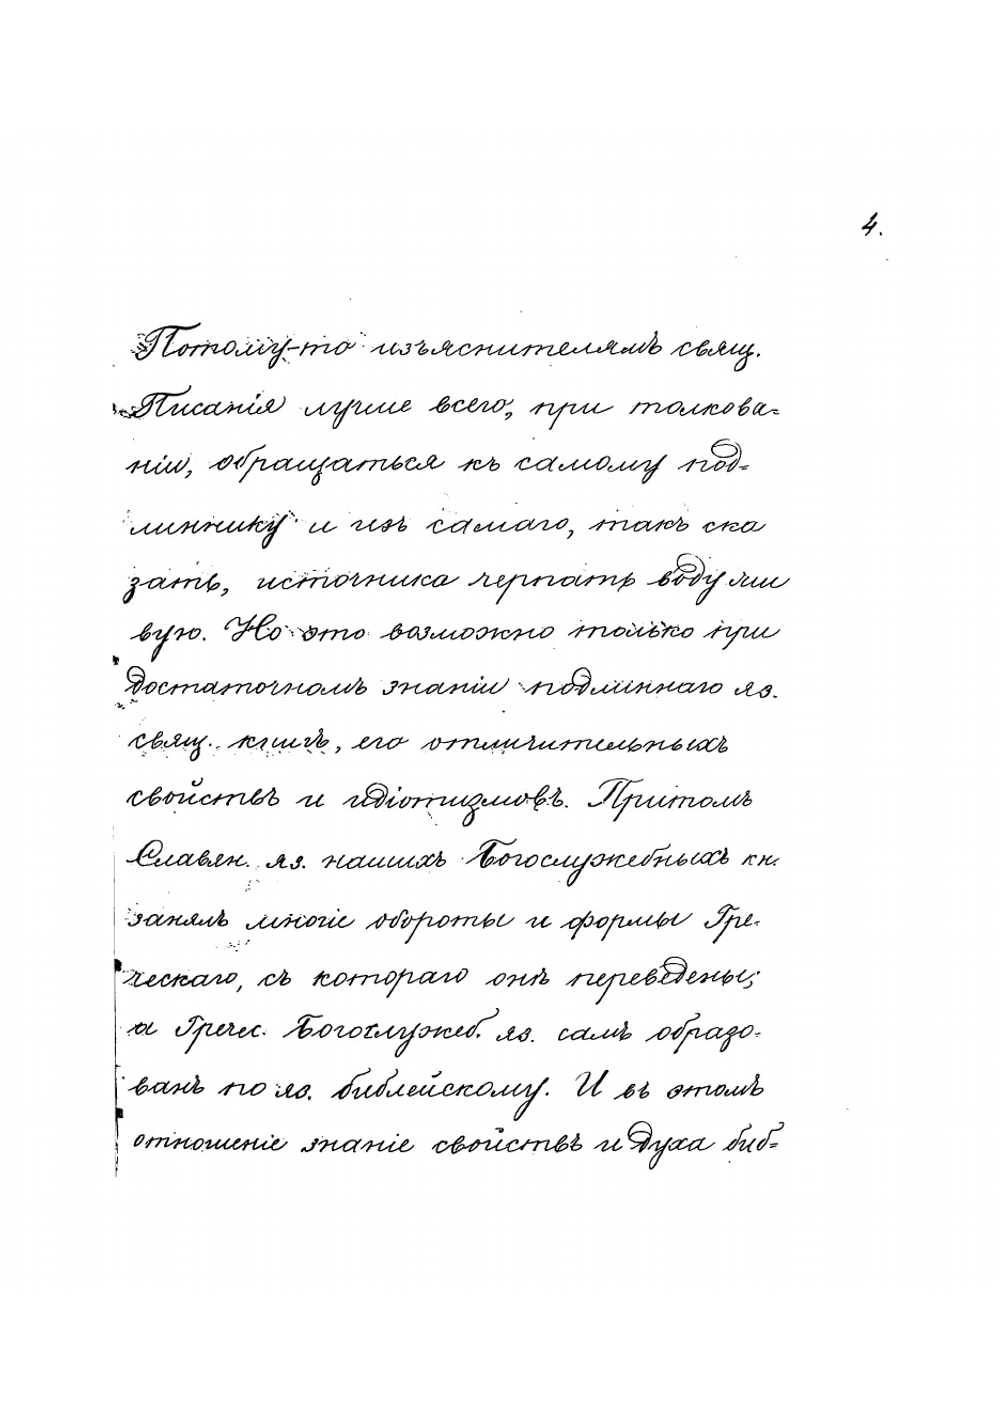 4.
Потому-то изъяснителямъ свящ.
Писанія лучше всего, при толкова=
ніи, обращаться къ самому под=
линнику и изъ самаго, такъ ска
зать, источника черпать воду жи
вую. Но это возможно только при
достаточномъ знаніи подлиннаго яз.
свящ. книгъ, его отличительныхъ
свойствъ и идіотизмовъ. Притомъ
Славян. яз. нашихъ Богослужебныхъ кн.
занялъ многіе обороты и формы Гре=
ческаго, съ котораго онѣ переведены;
а Гречес. Богослужеб. яз. самъ образо=
ванъ по яз. библейскому. И въ этомъ
отношеніе знаніе свойствъ и духа биб=